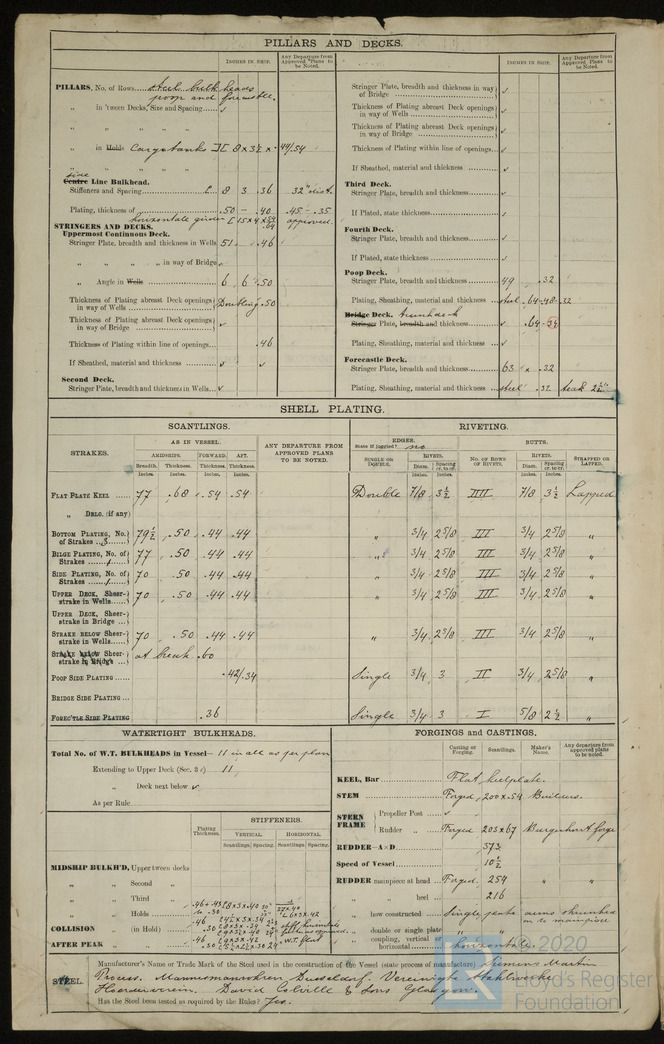 PILLARS AND DECKS.
INCHES IN SHIP.
Any Departure from Approved Plans to be Noted.
PILLARS, No. of Rows steel bulkheads
poop and forecastle.
„ in 'tween Decks, Size and Spacing ✓
„ „ „ „
„ in Holds Cargo tanks ][ 8 x 3½ x .44/54
„ „
side
Centre Line Bulkhead.
Stiffeners and Spacing 8 3 .36 32" dist.
Plating, thickness of .50 - .40 .45 - .35
horizontale girder [ 15 x 4 x approved.
STRINGERS AND DECKS.
Uppermost Continuous Deck.
Stringer Plate, breadth and thickness in Wells 51 .46
„ „ „ „ in way of Bridge ✓
„ Angle in Wells 6 6 .50
Thickness of Plating abreast Deck openings in way of Wells Doubling .50
Thickness of Plating abreast Deck openings in way of Bridge ✓
Thickness of Plating within line of openings .46
If Sheathed, material and thickness ✓ ✓
Second Deck.
Stringer Plate, breadth and thickness in Wells ✓
INCHES IN SHIP.
Any Departure from Approved Plans to be Noted.
Stringer Plate, breadth and thickness in way of Bridge ✓
Thickness of Plating abreast Deck openings in way of Wells ✓
Thickness of Plating abreast Deck openings in way of Bridge ✓
Thickness of Plating within line of openings ✓
If Sheathed, material and thickness ✓
Third Deck.
Stringer Plate, breadth and thickness ✓
If Plated, state thickness ✓
Fourth Deck.
Stringer Plate, breadth and thickness ✓
If Plated, state thickness ✓
Poop Deck.
Stringer Plate, breadth and thickness 49 .32
Plating, Sheathing, material and thickness steel .64-.48-.32
Bridge Deck. trunkdeck
Stringer Plate, breadth and thickness .64-.54
Plating, Sheathing, material and thickness ✓
Forecastle Deck.
Stringer Plate, breadth and thickness 63 x .32
Plating, Sheathing, material and thickness steel .32 teak 2½"
SHELL PLATING.
SCANTLINGS.
RIVETING.
STRAKES.
AS IN VESSEL.
AMIDSHIPS. FORWARD. AFT.
Breadth. Thickness. Thickness. Thickness.
Inches. Inches. Inches. Inches.
ANY DEPARTURE FROM APPROVED PLANS TO BE NOTED.
EDGES.
State if joggled? no
SINGLE OR DOUBLE.
RIVETS.
Diam. Spacing cr. to cr.
Inches. Inches.
BUTTS.
NO. OF ROWS OF RIVETS.
RIVETS.
Diam. Spacing cr. to cr.
Inches. Inches.
STRAPPED OR LAPPED.
FLAT PLATE KEEL 77 .68 .54 .54 Double 7/8 3½ IIII 7/8 3½ Lapped
„ DBLG. (if any)
BOTTOM PLATING, No. of Strakes 3 79½ .50 .44 .44 „ 3/4 2 5/8 III 3/4 2 5/8 „
BILGE PLATING, No. of Strakes 1 77 .50 .44 .44 „ 3/4 2 5/8 III 3/4 2 5/8 „
SIDE PLATING, No. of Strakes 1 70 .50 .44 .44 „ 3/4 2 5/8 III 3/4 2 5/8 „
UPPER DECK, Sheerstrake in Wells 70 .50 .44 .44 „ 3/4 2 5/8 III 3/4 2 5/8 „
UPPER DECK, Sheerstrake in Bridge
STRAKE BELOW Sheerstrake in Wells 70 .50 .44 .44 „ 3/4 2 5/8 III 3/4 2 5/8 „
STRAKE BELOW Sheerstrake in Bridge at break .60
POOP SIDE PLATING .42/.34 Single 3/4 3 II 3/4 2 5/8 „
BRIDGE SIDE PLATING
FOREC'TLE SIDE PLATING .36 Single 3/4 3 I 5/8 2½ „
WATERTIGHT BULKHEADS.
Total No. of W.T. BULKHEADS in Vessel— 11 in all as per plan
Extending to Upper Deck (Sec. 3 c) 11
„ Deck next below ✓
As per Rule
Plating Thickness.
STIFFENERS.
VERTICAL. HORIZONTAL.
Scantlings. Spacing. Scantlings. Spacing.
MIDSHIP BULKH'D, Upper tween decks
„ „ Second „
„ „ Third „
„ „ Holds
COLLISION „ (in Hold)
AFTER PEAK „ „
FORGINGS and CASTINGS.
Casting or Forging. Scantlings. Maker's Name. Any departure from approved plans to be noted.
KEEL, Bar Flat keelplate.
STEM Forged 200 x 54 Builders.
STERN FRAME
Propeller Post ✓
Rudder „ Forged 203 x 67 Burgenhart forge
RUDDER—A x D 373
Speed of Vessel 10½
RUDDER mainpiece at head Forged 254 „ „
„ „ heel 216
„ how constructed Single plate arms shrunked on to mainpiece
„ double or single plate
„ coupling, vertical or horizontal horizontal
STEEL.
Manufacturer's Name or Trade Mark of the Steel used in the construction of the Vessel (state process of manufacture) Siemens Martin
Process. Mannesmannröhren Dusseldorf. Vereinigte Stahlwerke
Hoerderverein. David Colville & Sons Glasgow.
Has the Steel been tested as required by the Rules? Yes.
© 2020
Lloyd's Register
Foundation